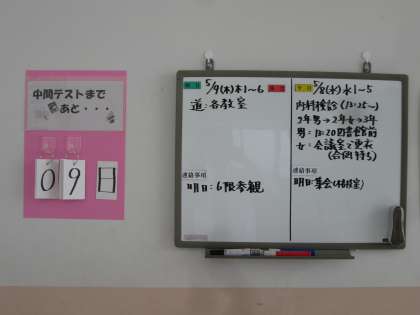 中間テストまで
あと・・・
09日
5/9(木)木1～6
道:各教室
連絡事項
明日:6限参観
5/8(水)水1～5
内科検診(13:25～)
2年男→2年女→3年
男:13:20図書館前
女:会議室で更衣
連絡事項